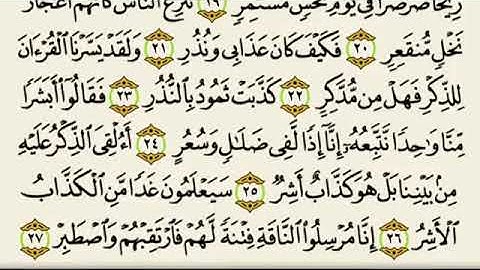 رِيحًا صَرْصَرًا فِي يَوْمِ نَحْسٍ مُّسْتَمِرٍّ ١٩ تَنزِعُ النَّاسَ كَأَنَّهُمْ أَعْجَازُ
نَخْلٍ مُّنقَعِرٍ ٢٠ فَكَيْفَ كَانَ عَذَابِي وَنُذُرِ ٢١ وَلَقَدْ يَسَّرْنَا ٱلْقُرْءَانَ
لِلذِّكْرِ فَهَلْ مِن مُّدَّكِرٍ ٢٢ كَذَّبَتْ ثَمُودُ بِٱلنُّذُرِ ٢٣ فَقَالُوٓا۟ أَبَشَرًا
مِّنَّا وَٰحِدًا نَّتَّبِعُهُۥٓ إِنَّآ إِذًا لَّفِى ضَلَٰلٍ وَسُعُرٍ ٢٤ أَءُلْقِىَ ٱلذِّكْرُ عَلَيْهِ
مِنۢ بَيْنِنَا بَلْ هُوَ كَذَّابٌ أَشِرٌ ٢٥ سَيَعْلَمُونَ غَدًا مَّنِ ٱلْكَذَّابُ
ٱلْأَشِرُ ٢٦ إِنَّا مُرْسِلُوا۟ ٱلنَّاقَةِ فِتْنَةً لَّهُمْ فَٱرْتَقِبْهُمْ وَٱصْطَبِرْ ٢٧